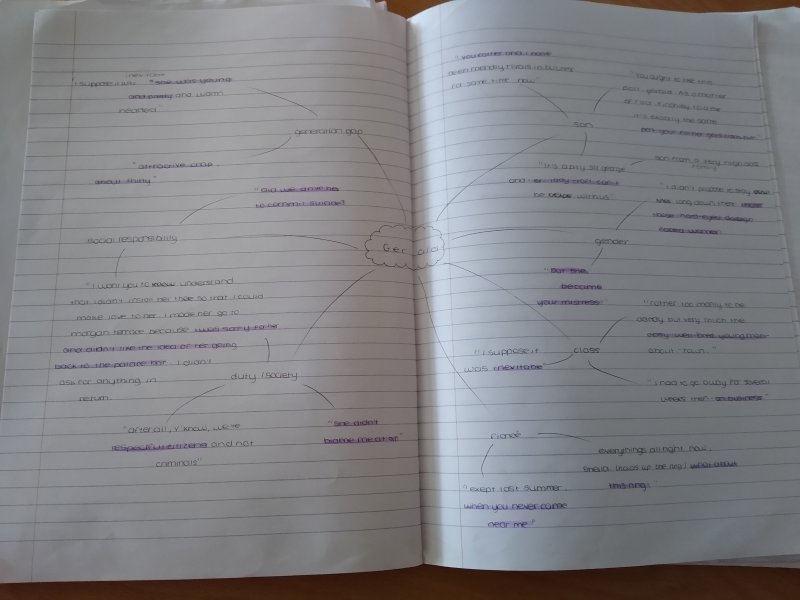 inevitable
"I suppose it was "she was young
and pretty and warm
hearted"
generation gap
"attractive chap
about thirty"
"Did we drive her
to commit suicide?
social responsibility
"I want you to know understand
that I didn't install her there so that I could
make love to her. I made her go to
morgan terrace because I was sorry for her
and didn't like the idea of her going
back to the palace bar. I didn't
ask for anything in
return.
duty/society
"after all, y'know, we're
respectful citizens and not
criminals"
"she didn't
blame me at all"
Gerald
"You father and I have
been friendly rivals in business
for some time now"
son
"You ought to like this
port, gerald. As a matter
of fact, finchley told me
it's exactly the same
port your father gets from him."
"It's a pity sir george
and lady croft can't
be with us"
son from a very high class
family
gender
"I didn't propose to stay
long down there
those hard-eyed dough-
faced women
"but she
became
your mistress"
class
"rather too manly to be
dandy but very much the
easy well-bred young man-
about-town."
"I suppose it
was inevitable"
"I had to go away for several
weeks then on business"
fiancé
everything's all right now,
sheila. (holds up the ring) what about
this ring?
"exept last summer,
when you never came
near me"